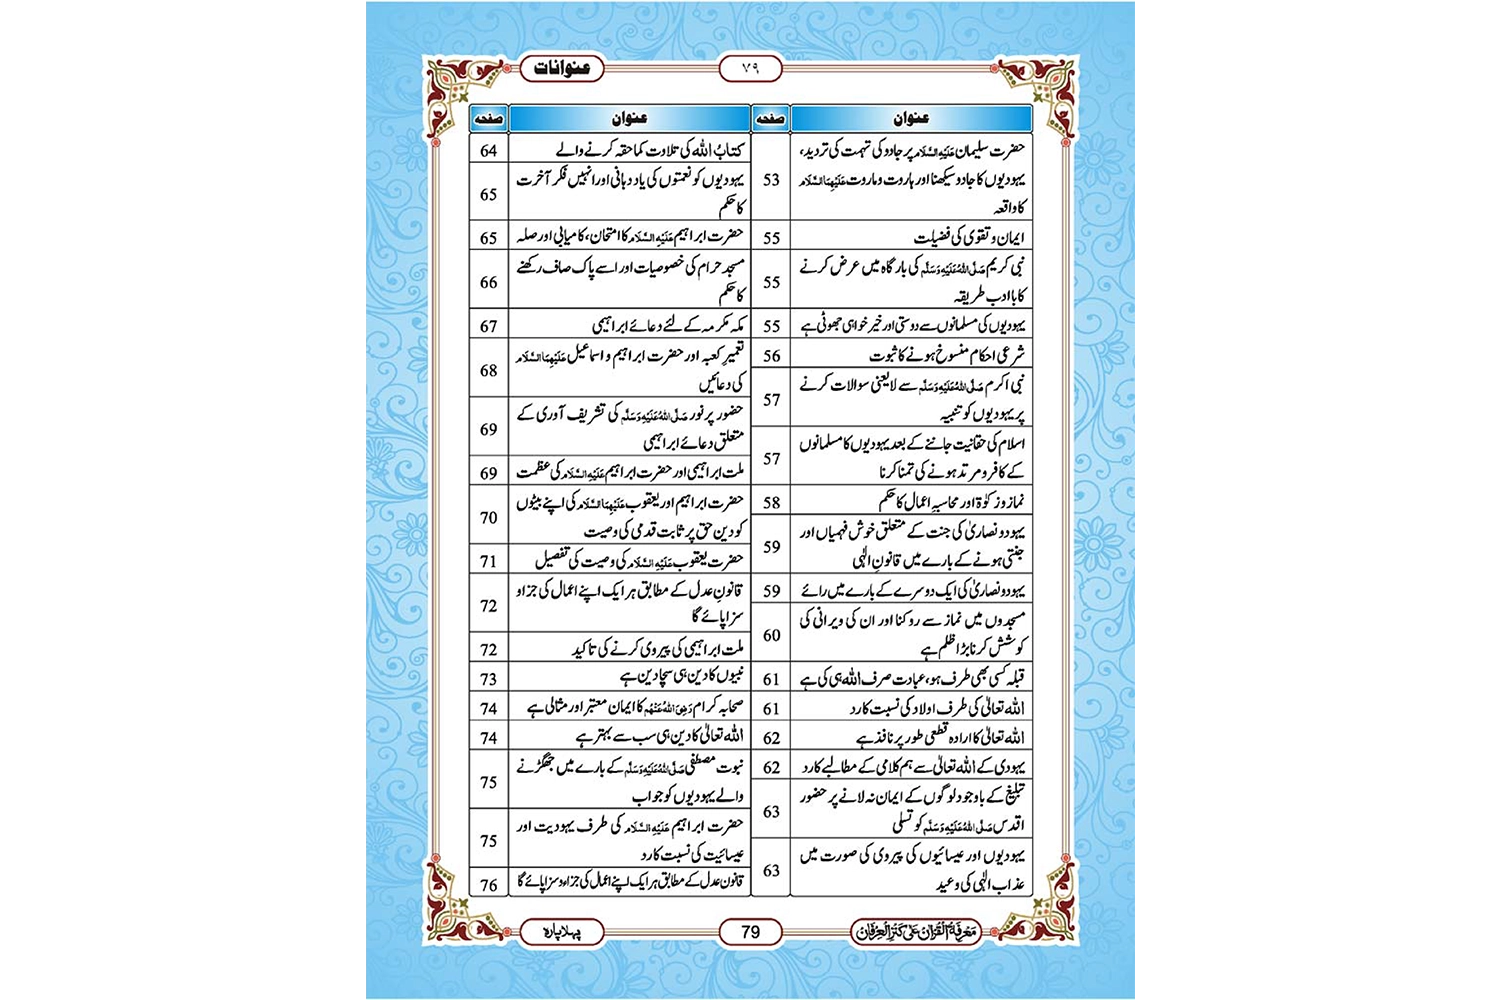 عنوانات
۷۹
عنوان
صفحہ
حضرت سلیمان عَلَیْہِ السَّلَام پر جادو کی تہمت کی تردید،
یہودیوں کا جادو سیکھنا اور ہاروت و ماروت عَلَیْہِمَا السَّلَام
کا واقعہ
53
ایمان و تقویٰ کی فضیلت
55
نبی کریم صَلَّی اللہُ عَلَیْہِ وَسَلَّم کی بارگاہ میں عرض کرنے
کا باادب طریقہ
55
یہودیوں کی مسلمانوں سے دوستی اور خیر خواہی جھوٹی ہے
55
شرعی احکام منسوخ ہونے کا ثبوت
56
نبی اکرم صَلَّی اللہُ عَلَیْہِ وَسَلَّم سے لایعنی سوالات کرنے
پر یہودیوں کو تنبیہ
57
اسلام کی حقانیت جاننے کے بعد یہودیوں کا مسلمانوں
کے کافر و مرتد ہونے کی تمنا کرنا
57
نماز و زکوٰۃ اور محاسبہِ اعمال کا حکم
58
یہود و نصاریٰ کی جنت کے متعلق خوش فہمیاں اور
جنتی ہونے کے بارے میں قانونِ الٰہی
59
یہود و نصاریٰ کی ایک دوسرے کے بارے میں رائے
59
مسجدوں میں نماز سے روکنا اور ان کی ویرانی کی
کوشش کرنا بڑا ظلم ہے
60
قبلہ کسی بھی طرف ہو، عبادت صرف اللہ ہی کی ہے
61
اللہ تعالیٰ کی طرف اولاد کی نسبت کا رد
61
اللہ تعالیٰ کا ارادہ قطعی طور پر نافذ ہے
62
یہودی کے اللہ تعالیٰ سے ہم کلامی کے مطالبے کا رد
62
تبلیغ کے باوجود لوگوں کے ایمان نہ لانے پر حضور
اقدس صَلَّی اللہُ عَلَیْہِ وَسَلَّم کو تسلی
63
یہودیوں اور عیسائیوں کی پیروی کی صورت میں
عذاب الٰہی کی وعید
63
عنوان
صفحہ
کتابُ اللہ کی تلاوت کماحقہ کرنے والے
64
یہودیوں کو نعمتوں کی یاد دہانی اور انہیں فکر آخرت
کا حکم
65
حضرت ابراہیم عَلَیْہِ السَّلَام کا امتحان، کامیابی اور صلہ
65
مسجد حرام کی خصوصیات اور اسے پاک صاف رکھنے
کا حکم
66
مکہ مکرمہ کے لئے دعائے ابراہیمی
67
تعمیرِ کعبہ اور حضرت ابراہیم و اسماعیل عَلَیْہِمَا السَّلَام
کی دعائیں
68
حضور پر نور صَلَّی اللہُ عَلَیْہِ وَسَلَّم کی تشریف آوری کے
متعلق دعائے ابراہیمی
69
ملت ابراہیمی اور حضرت ابراہیم عَلَیْہِ السَّلَام کی عظمت
69
حضرت ابراہیم اور یعقوب عَلَیْہِمَا السَّلَام کی اپنے بیٹوں
کو دین حق پر ثابت قدمی کی وصیت
70
حضرت یعقوب عَلَیْہِ السَّلَام کی وصیت کی تفصیل
71
قانونِ عدل کے مطابق ہر ایک اپنے اعمال کی جزا و
سزا پائے گا
72
ملت ابراہیمی کی پیروی کرنے کی تاکید
72
نبیوں کا دین ہی سچا دین ہے
73
صحابہ کرام رَضِیَ اللہُ عَنْہُم کا ایمان معتبر اور مثالی ہے
74
اللہ تعالیٰ کا دین ہی سب سے بہتر ہے
74
نبوت مصطفٰی صَلَّی اللہُ عَلَیْہِ وَسَلَّم کے بارے میں جھگڑنے
والے یہودیوں کو جواب
75
حضرت ابراہیم عَلَیْہِ السَّلَام کی طرف یہودیت اور
عیسائیت کی نسبت کا رد
75
قانون عدل کے مطابق ہر ایک اپنے اعمال کی جزاء و سزا پائے گا
76
مَعْرِفَۃُ الْقُرْآن عَلٰی کَنْزُ الْعِرْفَان
79
پہلا پارہ